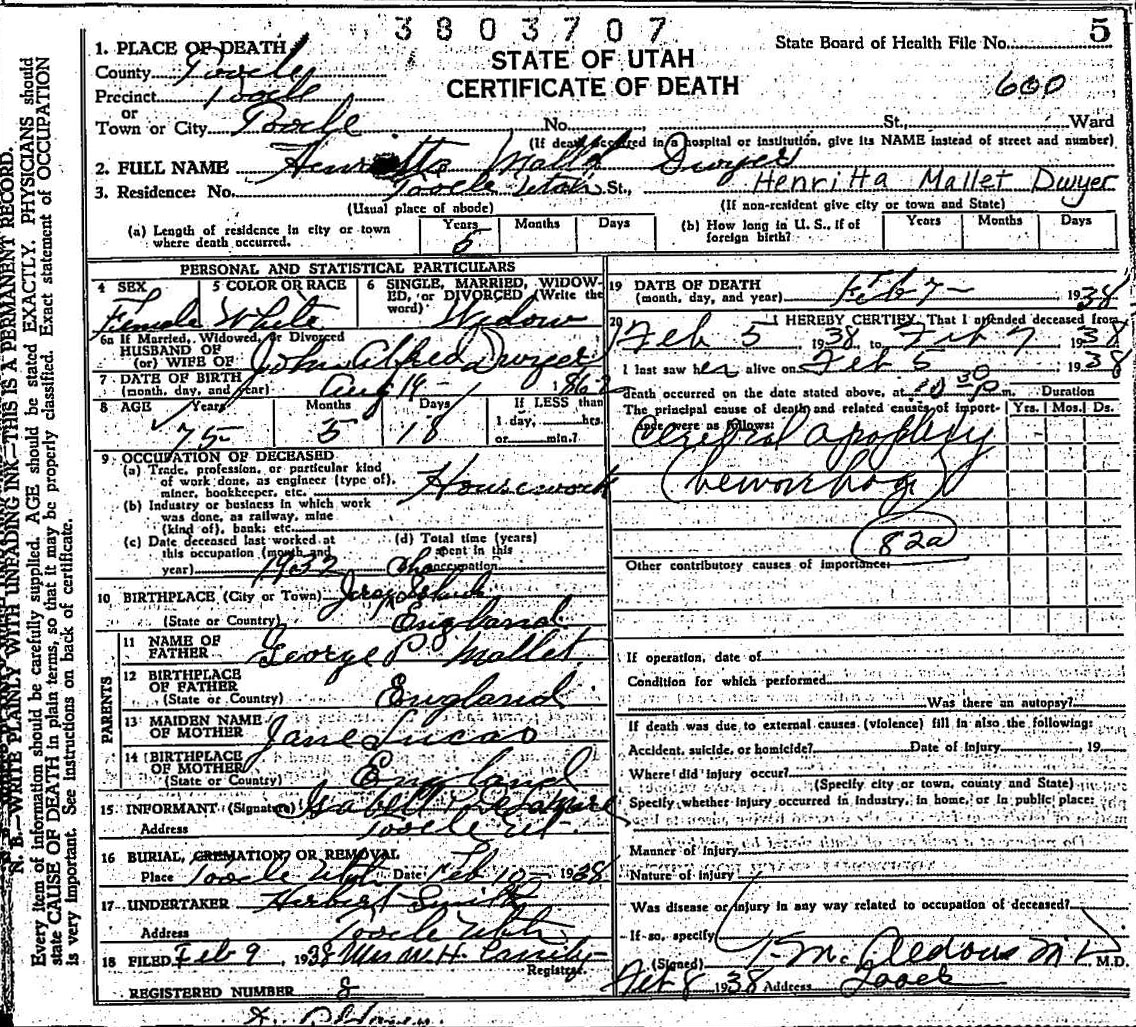 3803707
State Board of Health File No. 5
STATE OF UTAH
CERTIFICATE OF DEATH
600
1. PLACE OF DEATH
County Tooele
Precinct Tooele
or
Town or City Tooele No. St., Ward
(If death occurred in a hospital or institution, give its NAME instead of street and number)
2. FULL NAME Henrietta Mallet Dwyer
Henritta Mallet Dwyer
3. Residence: No. Tooele Utah St.,
(Usual place of abode) (If non-resident give city or town and State)
(a) Length of residence in city or town where death occurred. Years 5 Months Days
(b) How long in U. S., if of foreign birth? Years Months Days
PERSONAL AND STATISTICAL PARTICULARS
4 SEX Female
5 COLOR OR RACE White
6 SINGLE, MARRIED, WIDOWED, or DIVORCED (Write the word) Widow
6a If Married, Widowed, or Divorced
HUSBAND OF
(or) WIFE OF John Alfred Dwyer
7 DATE OF BIRTH
(month, day, and year) Aug 19
8 AGE Years 75 Months 5 Days 18 If LESS than
1 day, hrs.
or min.?
9 OCCUPATION OF DECEASED
(a) Trade, profession, or particular kind
of work done, as engineer (type of),
miner, bookkeeper, etc. Housework
(b) Industry or business in which work
was done, as railway, mine
(kind of), bank, etc.
(c) Date deceased last worked at
this occupation (month and
year) 1932
(d) Total time (years)
spent in this
occupation
10 BIRTHPLACE (City or Town)
(State or Country) England
PARENTS
11 NAME OF
FATHER George P. Mallet
12 BIRTHPLACE
OF FATHER
(State or Country) England
13 MAIDEN NAME
OF MOTHER Jane Lucas
14 BIRTHPLACE
OF MOTHER
(State or Country) England
15 INFORMANT (Signature) Isabell
Address Tooele Ut.
16 BURIAL, CREMATION, OR REMOVAL
Place Tooele Utah Date Feb 10 1938
17 UNDERTAKER Herbert Smith
Address Tooele Utah
18 FILED Feb 9, 1938
Registrar.
REGISTERED NUMBER 8
19 DATE OF DEATH
(month, day, and year) Feb 7 1938
20 I HEREBY CERTIFY, That I attended deceased from
Feb 5 1938 to Feb 7 1938
I last saw her alive on Feb 5, 1938
death occurred on the date stated above, at 10 30 P m.
The principal cause of death and related causes of importance were as follows:
Duration
Yrs. Mos. Ds.
Cerebral apoplexy
(hemorrhage)
82a
Other contributory causes of importance:
If operation, date of
Condition for which performed
Was there an autopsy?
If death was due to external causes (violence) fill in also the following:
Accident, suicide, or homicide? Date of injury , 19
Where did injury occur?
(Specify city or town, county and State)
Specify whether injury occurred in industry, in home, or in public place:
Manner of injury
Nature of injury
Was disease or injury in any way related to occupation of deceased?
If so, specify
(Signed) M.D.
Feb 8 1938 Address Tooele
N. B.—WRITE PLAINLY WITH UNFADING INK—THIS IS A PERMANENT RECORD.
Every item of information should be carefully supplied. AGE should be stated EXACTLY. PHYSICIANS should
state CAUSE OF DEATH in plain terms, so that it may be properly classified. Exact statement of OCCUPATION
is very important. See instructions on back of certificate.